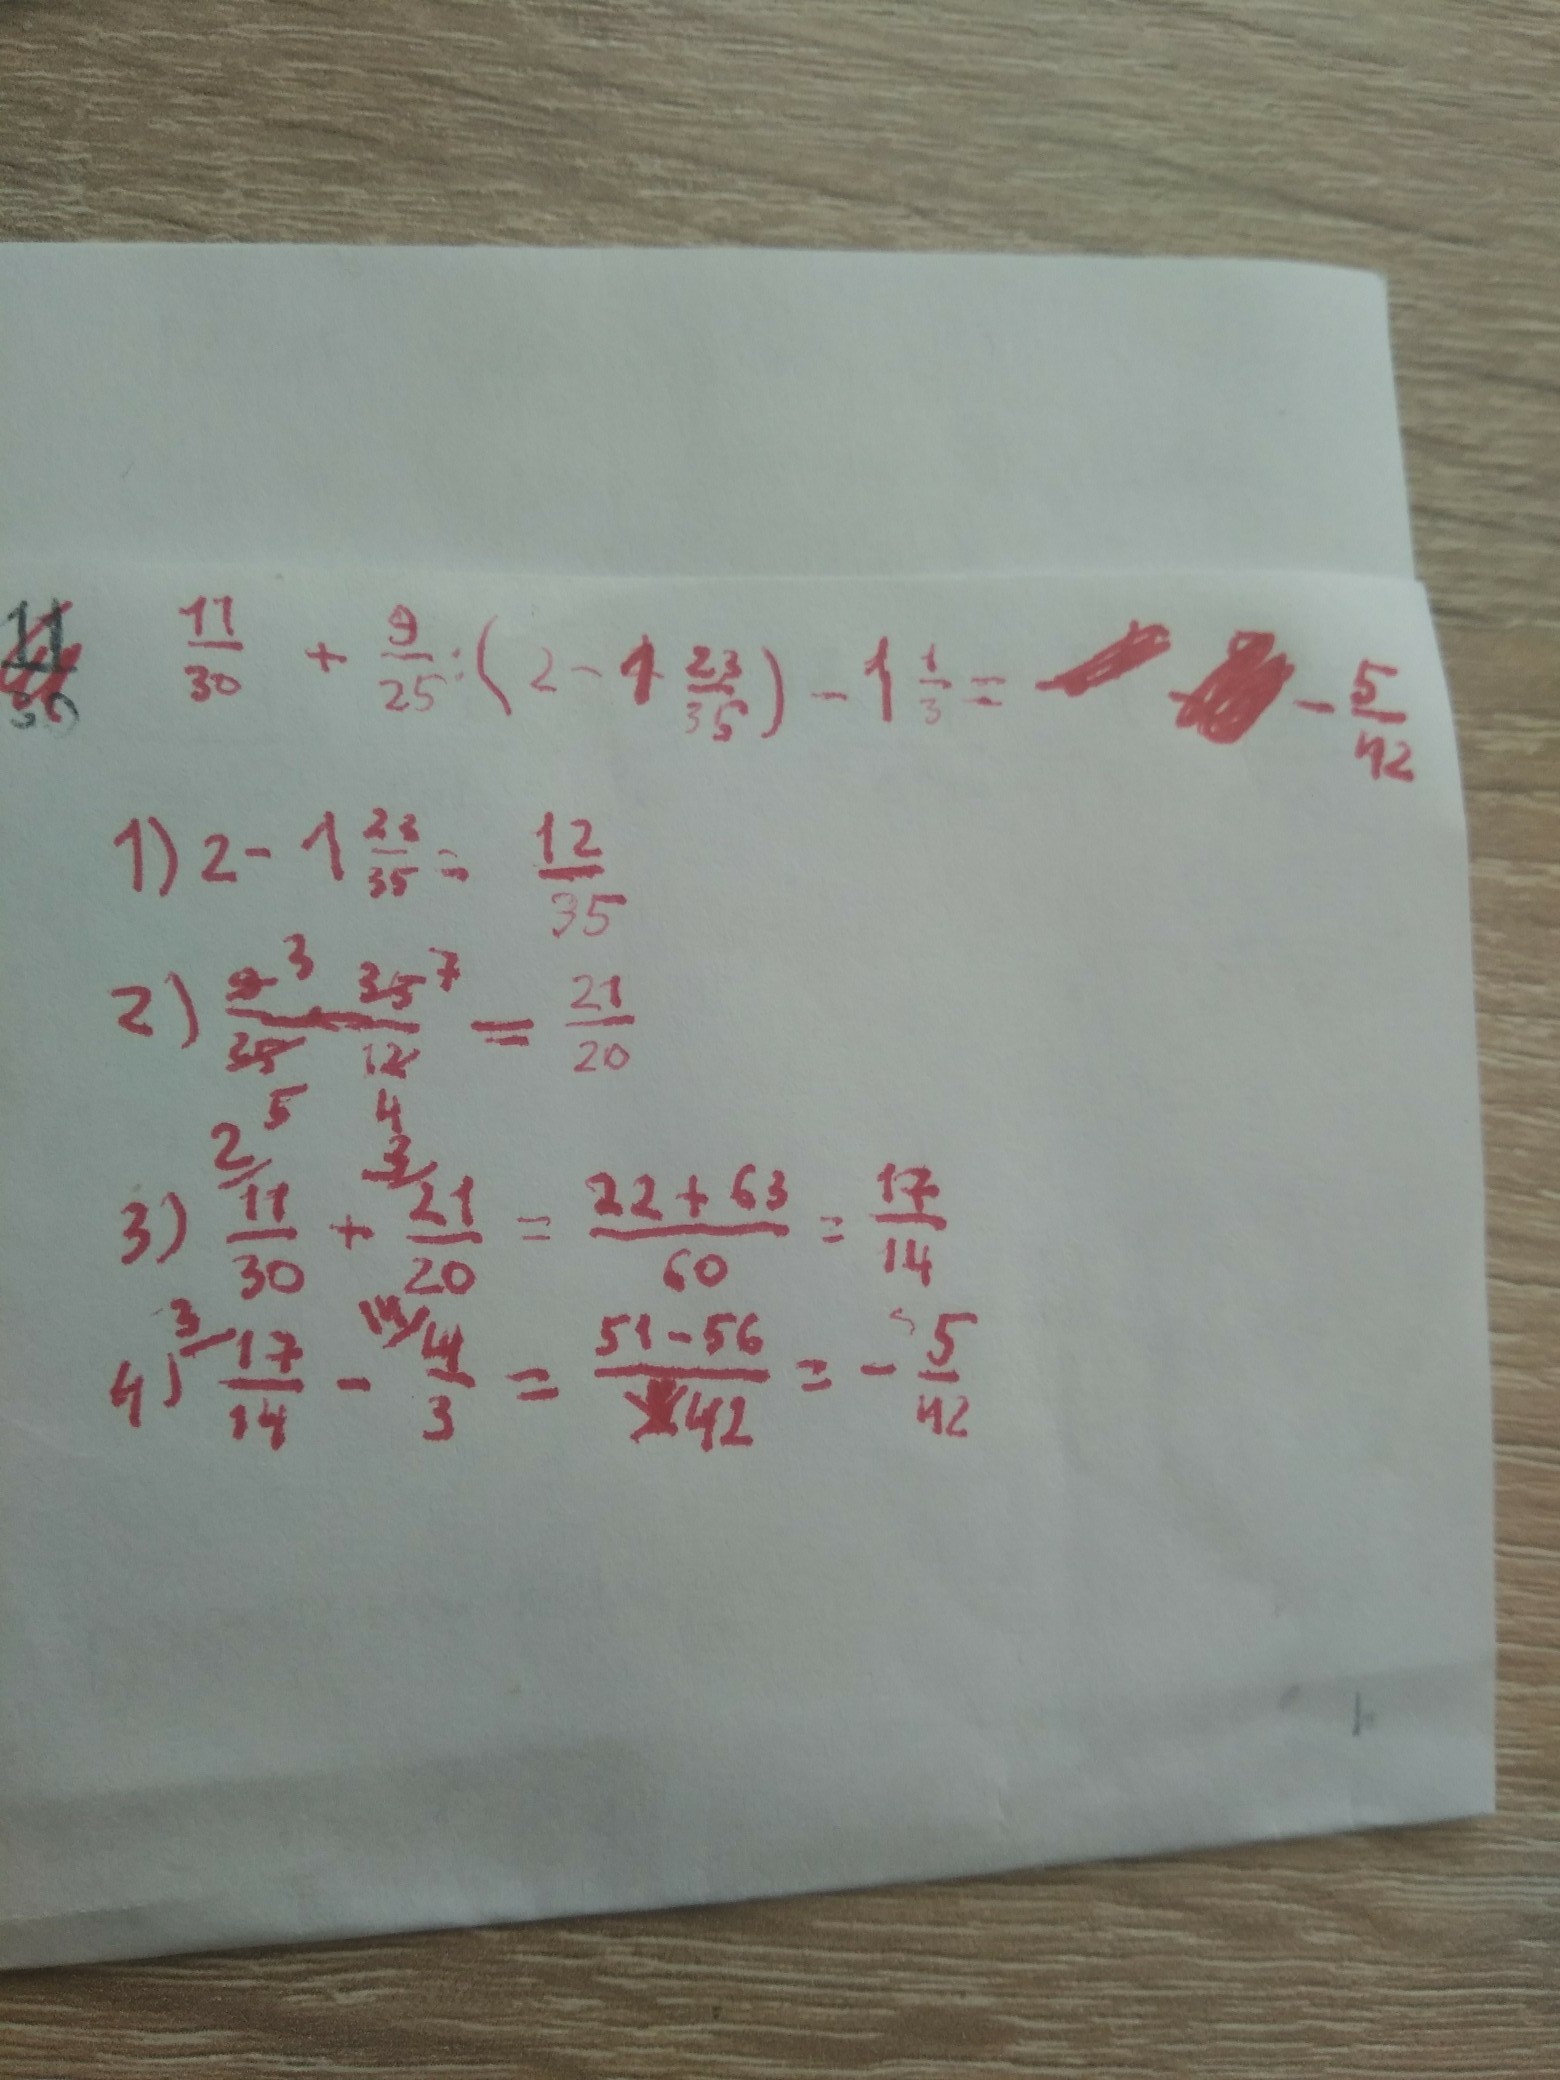 11/30 11/30 + 9/25 : (2 - 1 23/35) - 1 1/3 = - 5/42
1) 2 - 1 23/35 = 12/35
2) 9 3 35 7 / 35 5 12 4 = 21/20
3) 2/ 11/30 + 3/ 21/20 = 22+63/60 = 17/14
4) 3/ 17/14 - 14/ 4/3 = 51-56/42 = - 5/42